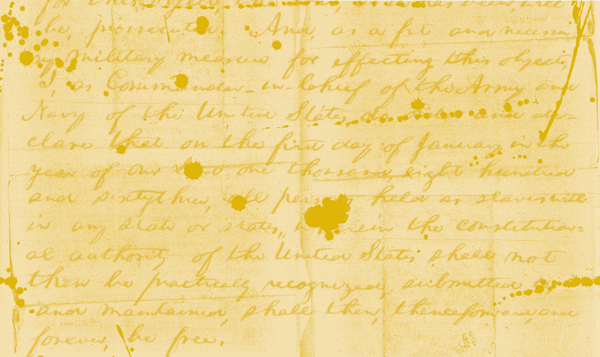 be, prosecuted. And, as a fit and necessa-
ry military measure for effecting this object,
I, as Commander-in-Chief of the Army and
Navy of the United States, do order and de-
clare that on the first day of January in the
year of our Lord one thousand, eight hundred
and sixtythree, all persons held as slaves with
in any state or states, wherein the constitution-
al authority of the United States shall not
then be practically recognized, submitted to,
and maintained, shall then, thenceforward, and
forever, be free.